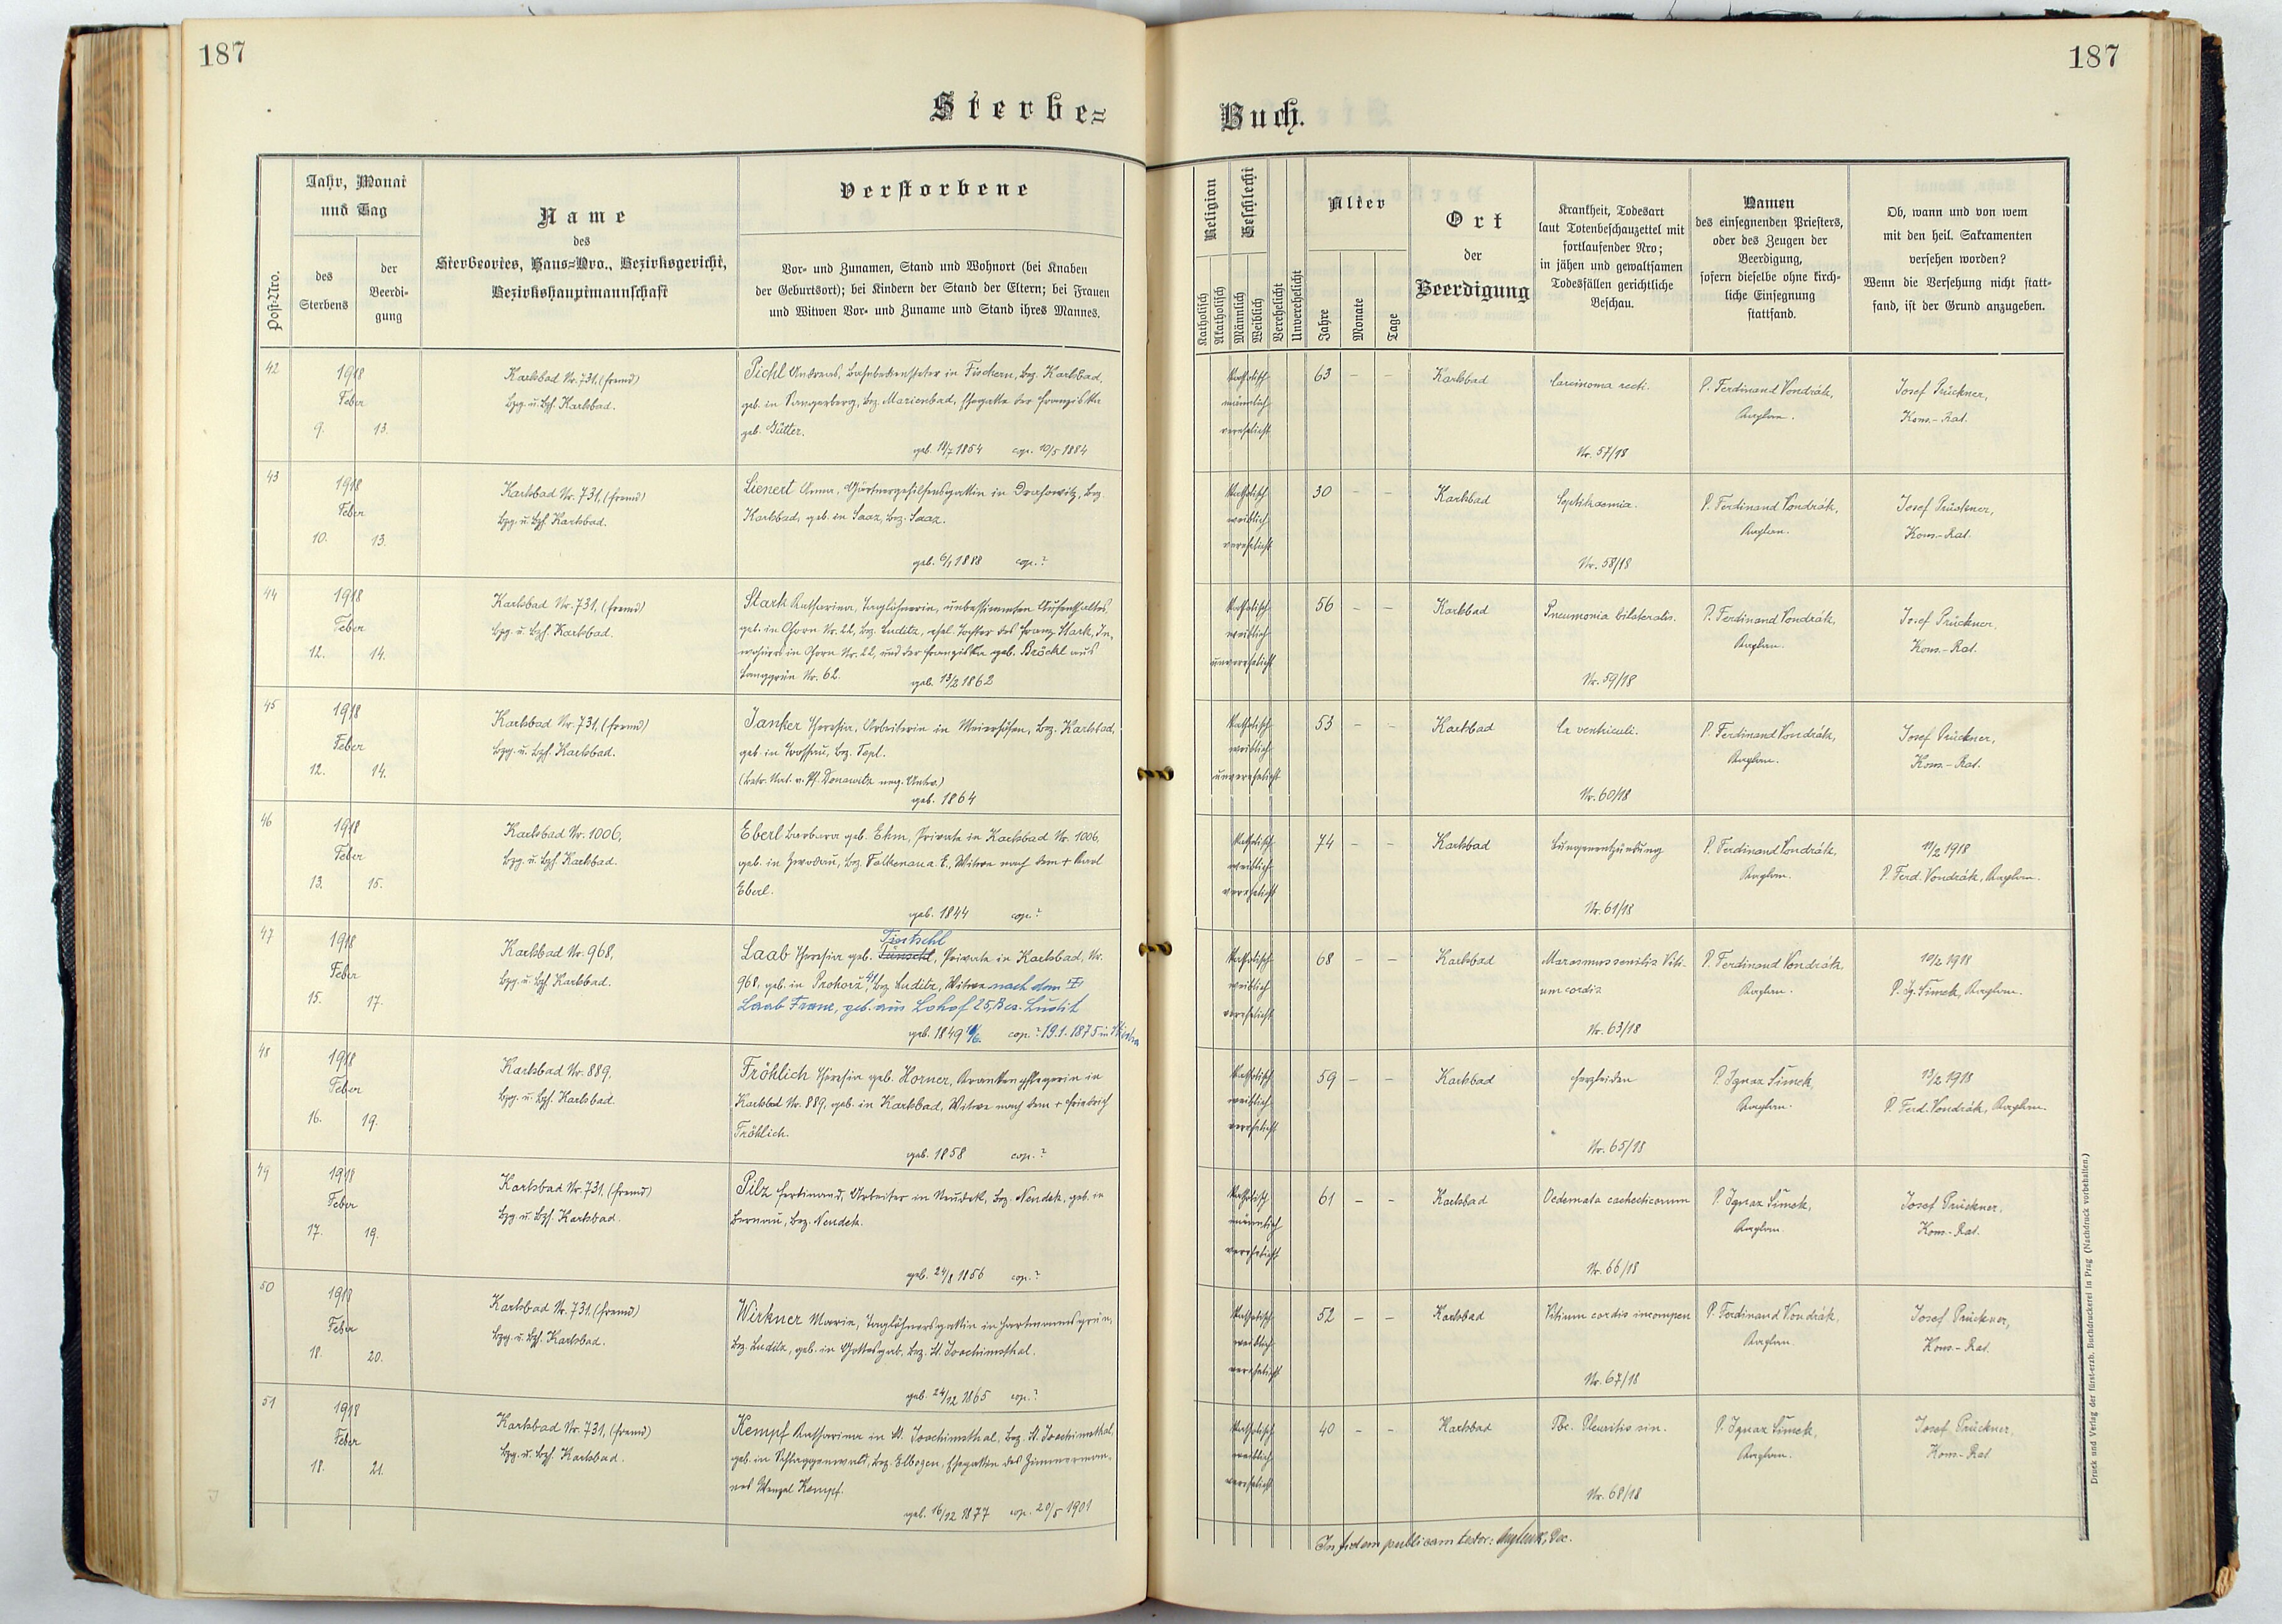 187
187
Sterbe=
Buch.
Post-Nro.
Jahr, Monat
und Tag
des
Sterbens
der
Beerdi-
gung
Name
des
Sterbeortes, Haus=Nro., Bezirksgericht,
Bezirkshauptmannschaft
Verstorbene
Vor- und Zunamen, Stand und Wohnort (bei Knaben
der Geburtsort); bei Kindern der Stand der Eltern; bei Frauen
und Witwen Vor- und Zuname und Stand ihres Mannes.
Religion
Katholisch
Akatholisch
Geschlecht
Männlich
Weiblich
Verehelicht
Unverehelicht
Alter
Jahre
Monate
Tage
Ort
der
Beerdigung
Krankheit, Todesart
laut Totenbeschauzettel mit
fortlaufender Nro;
in jähen und gewaltsamen
Todesfällen gerichtliche
Beschau.
Namen
des einsegnenden Priesters,
oder des Zeugen der
Beerdigung,
sofern dieselbe ohne kirch-
liche Einsegnung
stattfand.
Ob, wann und von wem
mit den heil. Sakramenten
versehen worden?
Wenn die Versehung nicht statt-
fand, ist der Grund anzugeben.
42
1918
Feber
9. 13.
Karlsbad Nr. 731, (fremd)
Bzg. u. Bzh. Karlsbad.
Pichl Andreas, Bahnbediensteter in Fischern, Bez. Karlsbad,
geb. in Rangerberg, Bez. Marienbad, Ehegatte der Franziska
geb. Gütter.
geb. 14/7 1854 cop. 10/5 1884
katholisch
männlich
verehelicht
63 – –
Karlsbad
Carcinoma recti.
Nr. 57/18
P. Ferdinand Vondrák,
Kaplan.
Josef Prückner,
Kons.-Rat.
43
1918
Feber
10. 13.
Karlsbad Nr. 731, (fremd)
Bzg. u. Bzh. Karlsbad.
Lienert Anna, Gärtnergehilfensgattin in Drahowitz, Bez.
Karlsbad, geb. in Saaz, Bez. Saaz.
geb. 6/1 1888 cop.?
katholisch
weiblich
verehelicht
30 – –
Karlsbad
Septikaemia.
Nr. 58/18
P. Ferdinand Vondrák,
Kaplan.
Josef Prückner,
Kons.-Rat.
44
1918
Feber
12. 14.
Karlsbad Nr. 731, (fremd)
Bzg. u. Bzh. Karlsbad.
Stark Katharina, Taglöhnerin, unbestimmten Aufenthaltes,
geb. in Gorn Nr. 22, Bez. Luditz, ehel. Tochter des Franz Stark, In-
wohners in Gorn Nr. 22, und der Franziska geb. Bröckl aus
Langgrün Nr. 62. geb. 13/2 1862
katholisch
weiblich
unverehelicht
56 – –
Karlsbad
Pneumonia bilateralis.
Nr. 59/18
P. Ferdinand Vondrák,
Kaplan.
Josef Prückner,
Kons.-Rat.
45
1918
Feber
12. 14.
Karlsbad Nr. 731, (fremd)
Bzg. u. Bzh. Karlsbad.
Janker Theresia, Arbeiterin in Meierhöfen, Bez. Karlsbad,
geb. in Tepl.
geb. 1864
katholisch
weiblich
unverehelicht
53 – –
Karlsbad
Ca ventriculi.
Nr. 60/18
P. Ferdinand Vondrák,
Kaplan.
Josef Prückner,
Kons.-Rat.
46
1918
Feber
13. 15.
Karlsbad Nr. 1006,
Bzg. u. Bzh. Karlsbad.
Eberl Barbara geb. Ekm, Private in Karlsbad Nr. 1006,
geb. in Zwodau, Bez. Falkenau a. E., Witwe nach dem + Karl
Eberl.
geb. 1844 cop.?
katholisch
weiblich
verehelicht
74 – –
Karlsbad
Lungenentzündung
Nr. 61/18
P. Ferdinand Vondrák,
Kaplan.
11/2 1918
P. Ferd. Vondrák, Kaplan.
47
1918
Feber
15. 17.
Karlsbad Nr. 968,
Bzg. u. Bzh. Karlsbad.
Tintschl
Laab Theresia geb. Tünschl, Private in Karlsbad, Nr.
968, geb. in Prohorz 41, Bez. Luditz, Witwe nach dem +
Laab Franz, geb. aus Lohof 25, Bez. Luditz
geb. 1849 cop.? 19.1.1875 in
katholisch
weiblich
verehelicht
68 – –
Karlsbad
Marasmus senilis Viti-
um cordis
Nr. 63/18
P. Ferdinand Vondrák,
Kaplan.
10/2 1918
P. Ig. Šimek, Kaplan.
48
1918
Feber
16. 19.
Karlsbad Nr. 889,
Bzg. u. Bzh. Karlsbad.
Fröhlich Theresia geb. Horner, Krankenpflegerin in
Karlsbad Nr. 889, geb. in Karlsbad, Witwe nach dem + Friedrich
Fröhlich.
geb. 1858 cop.?
katholisch
weiblich
verehelicht
59 – –
Karlsbad
Herzleiden
Nr. 65/18
P. Ignaz Šimek,
Kaplan.
13/2 1918
P. Ferd. Vondrák, Kaplan.
49
1918
Feber
17. 19.
Karlsbad Nr. 731, (fremd)
Bzg. u. Bzh. Karlsbad.
Pilz Ferdinand, Arbeiter in Neudek, Bez. Neudek, geb. in
Bernau, Bez. Neudek.
geb. 24/8 1856 cop.?
katholisch
männlich
verehelicht
61 – –
Karlsbad
Oedemata cachecticorum
Nr. 66/18
P. Ignaz Šimek,
Kaplan.
Josef Prückner,
Kons.-Rat.
50
1918
Feber
18. 20.
Karlsbad Nr. 731, (fremd)
Bzg. u. Bzh. Karlsbad.
Wirkner Maria, Taglöhnersgattin in Hartmannsgrün,
Bez. Luditz, geb. in Gottesgab, Bez. St. Joachimsthal.
geb. 24/12 1865 cop.?
katholisch
weiblich
verehelicht
52 – –
Karlsbad
Vitium cordis incompen
Nr. 67/18
P. Ferdinand Vondrák,
Kaplan.
Josef Prückner,
Kons.-Rat.
51
1918
Feber
18. 21.
Karlsbad Nr. 731, (fremd)
Bzg. u. Bzh. Karlsbad.
Kempf Katharina in St. Joachimsthal, Bez. St. Joachimsthal,
geb. in Schlaggenwald, Bez. Elbogen, Ehegattin des Zimmerman-
nes Wenzel Kempf.
geb. 16/12 1877 cop. 20/5 1901
katholisch
weiblich
verehelicht
40 – –
Karlsbad
Tbc. Pleuritis sin.
Nr. 68/18
P. Ignaz Šimek,
Kaplan.
Josef Prückner,
Kons.-Rat.
In fidem publicam testor: Dec.
Druck und Verlag der fürst-erzb. Buchdruckerei in Prag (Nachdruck vorbehalten.)